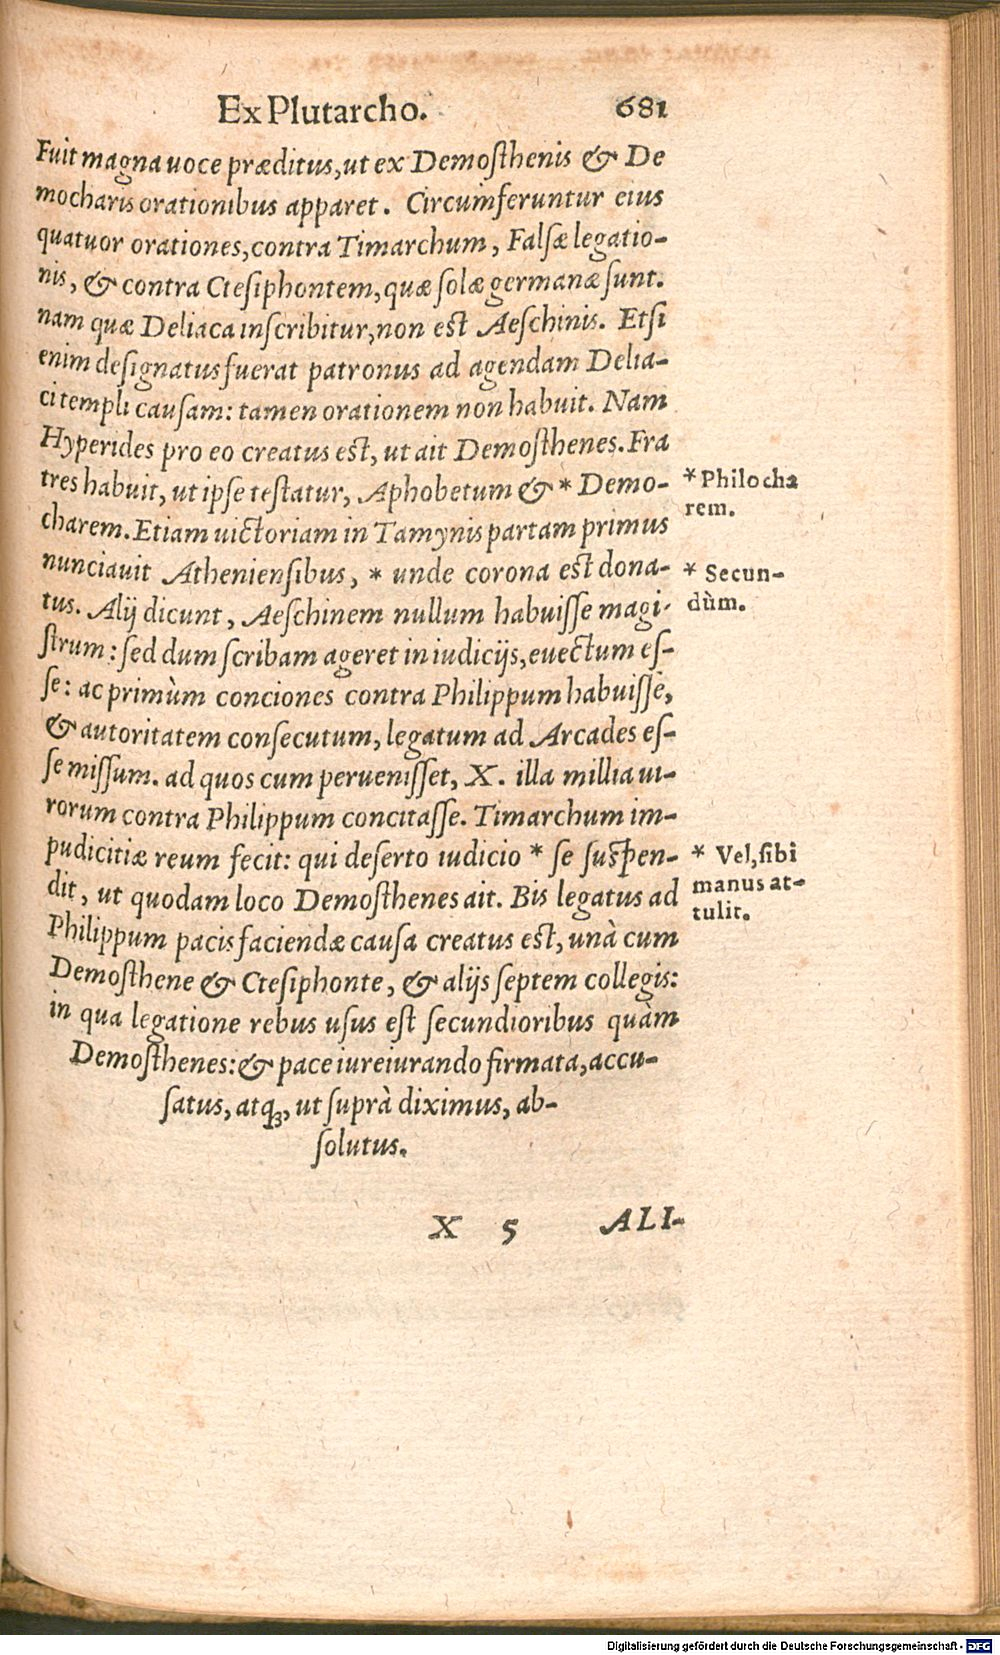 Ex Plutarcho. 681
Fuit magna uoce præditus, ut ex Demosthenis & De
mocharis orationibus apparet. Circumferuntur eius
quatuor orationes, contra Timarchum, Falsæ legatio-
nis, & contra Ctesiphontem, quæ solæ germanæ sunt.
nam quæ Deliaca inscribitur, non est Aeschinis. Etsi
enim designatus fuerat patronus ad agendam Delia-
ci templi causam: tamen orationem non habuit. Nam
Hyperides pro eo creatus est, ut ait Demosthenes. Fra
tres habuit, ut ipse testatur, Aphobetum & * Demo-
charem. Etiam uictoriam in Tamynis partam primus
nunciauit Atheniensibus, * unde corona est dona-
tus. Alij dicunt, Aeschinem nullum habuisse magi-
strum: sed dum scribam ageret in iudicijs, euectum es-
se: ac primùm conciones contra Philippum habuisse,
& autoritatem consecutum, legatum ad Arcades es-
se missum. ad quos cum peruenisset, X. illa millia ui-
rorum contra Philippum concitasse. Timarchum im-
pudicitiæ reum fecit: qui deserto iudicio * se suspen-
dit, ut quodam loco Demosthenes ait. Bis legatus ad
Philippum pacis faciendæ causa creatus est, unà cum
Demosthene & Ctesiphonte, & alijs septem collegis:
in qua legatione rebus usus est secundioribus quàm
Demosthenes: & pace iureiurando firmata, accu-
satus, atqꝫ, ut suprà diximus, ab-
solutus.
* Philocha
rem.
* Secun-
dùm.
* Vel, sibi
manus at-
tulit.
X 5 ALI-
Digitalisierung gefördert durch die Deutsche Forschungsgemeinschaft - DFG